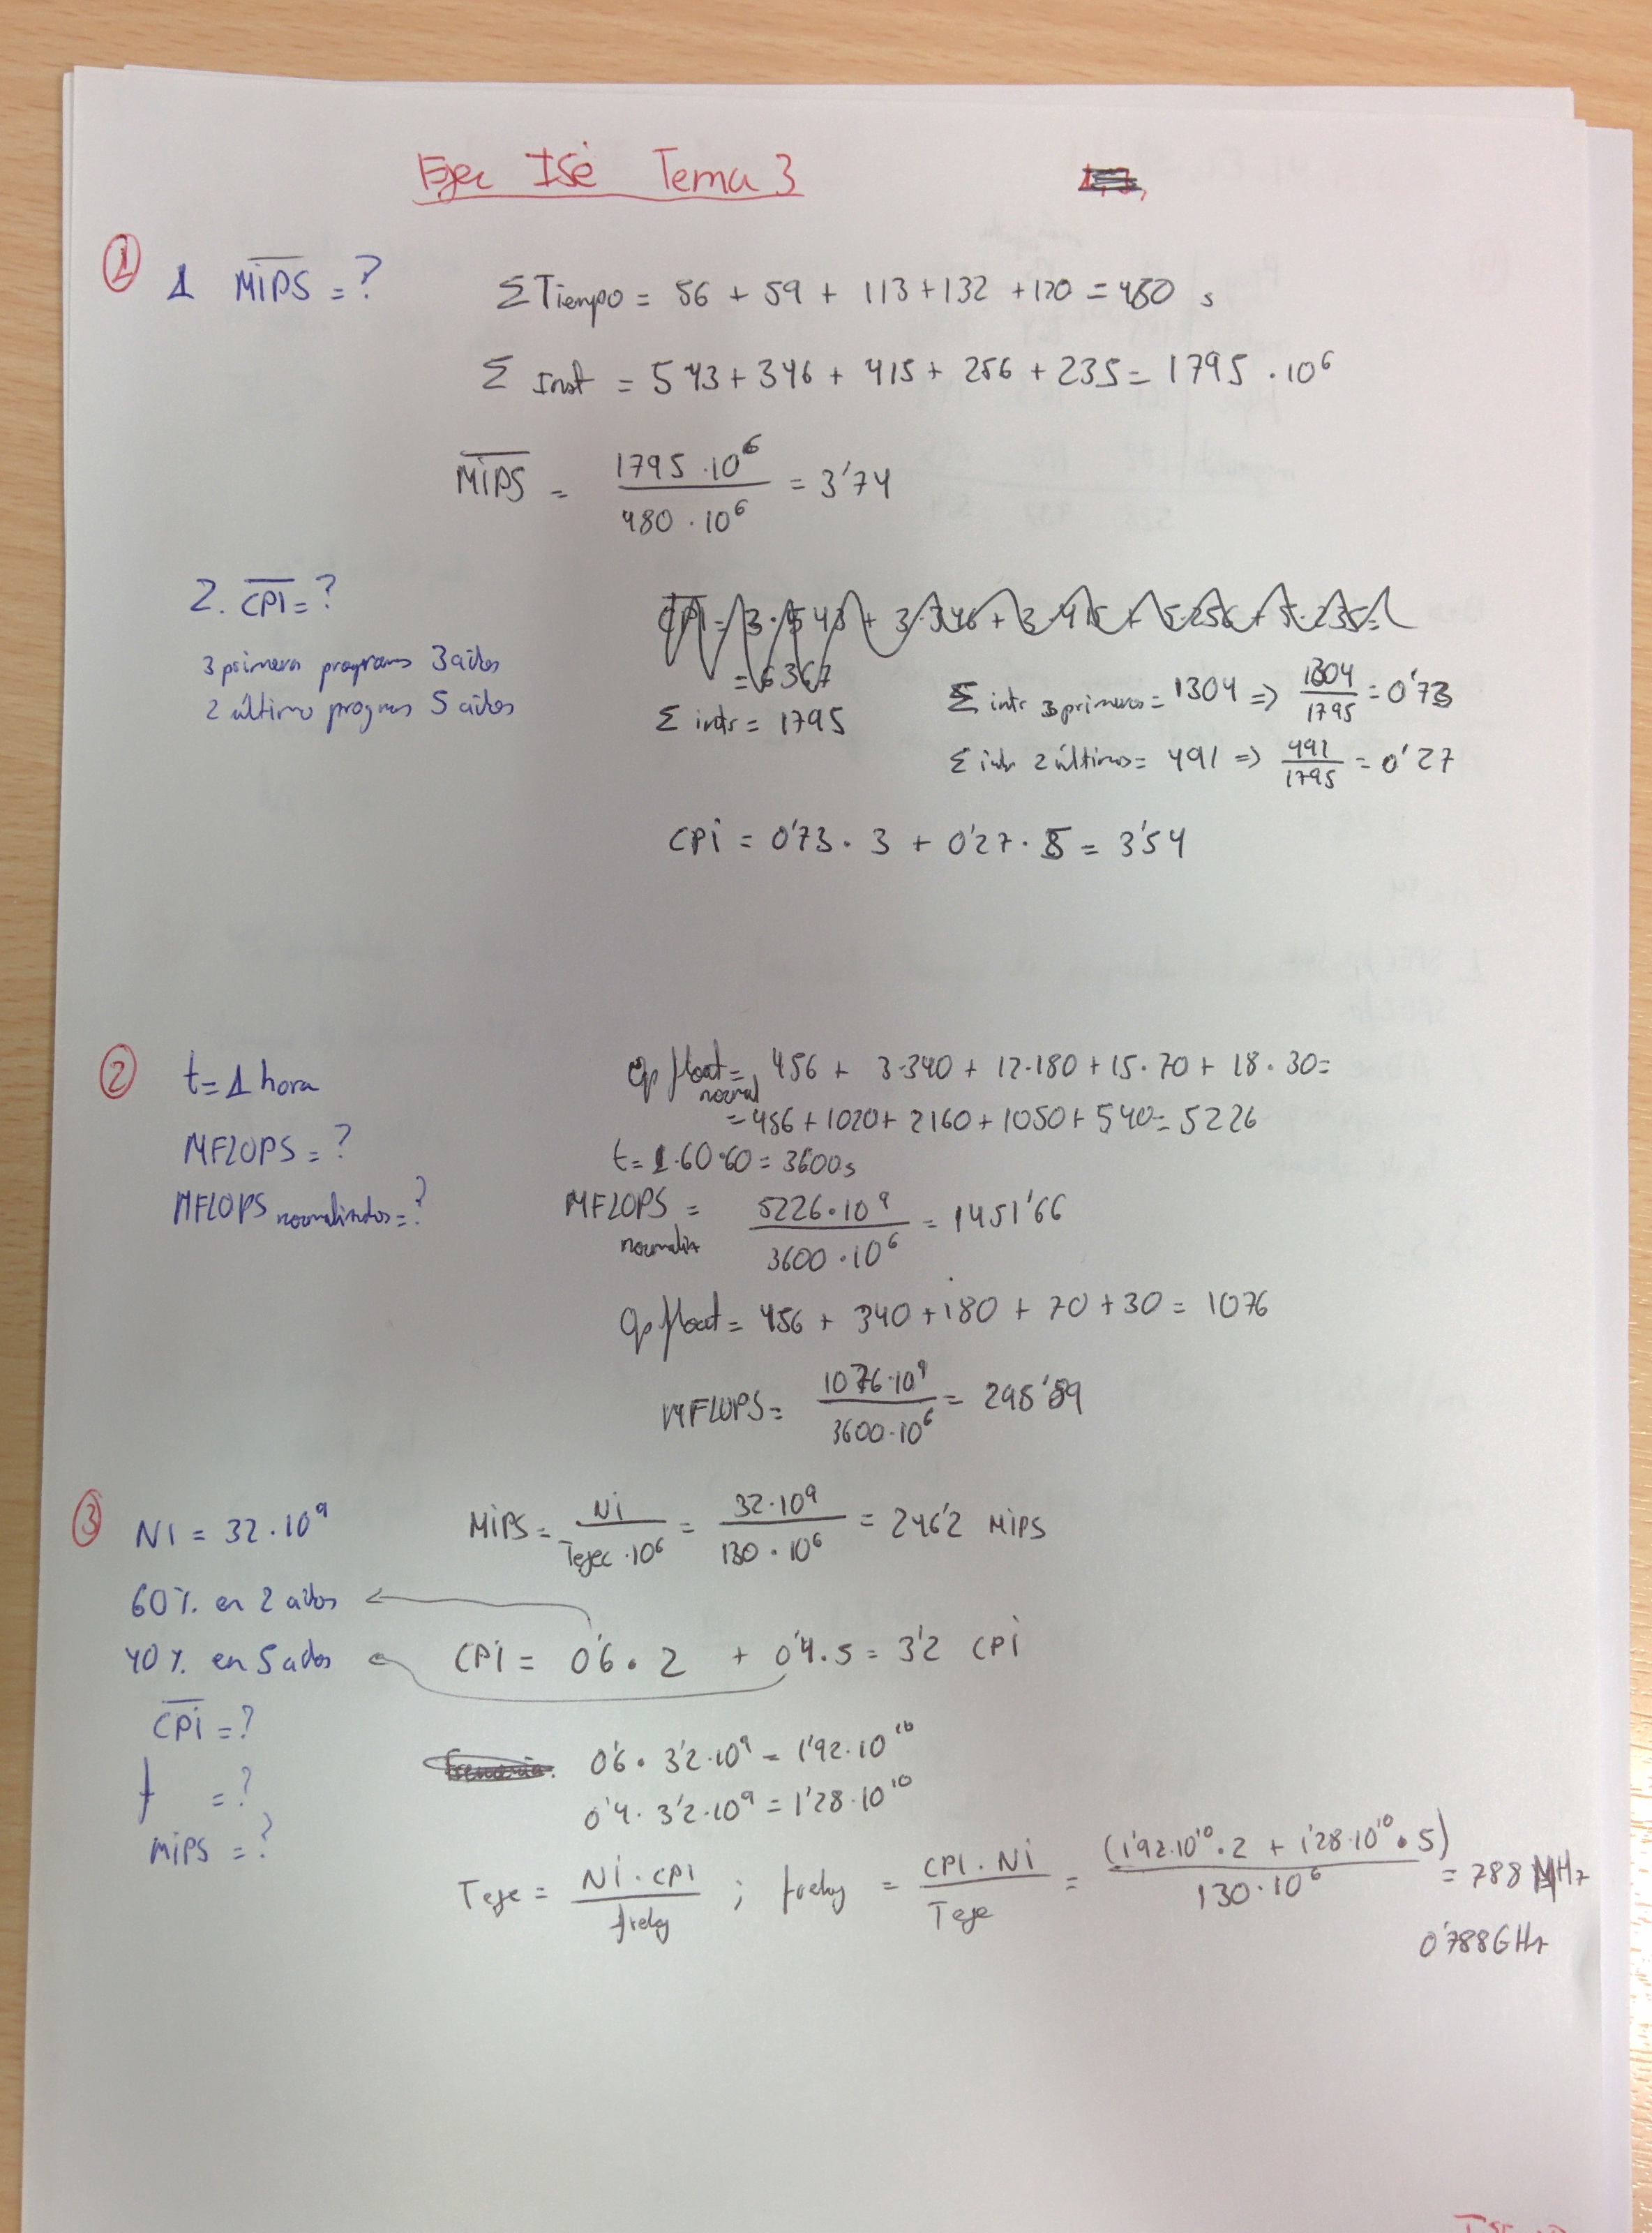 Ejer ISE Tema 3
① 1 MIPS = ?
ΣTiempo = 56 + 59 + 113 + 132 + 120 = 480 s
Σ Inst = 543 + 346 + 415 + 256 + 235 = 1795 · 10⁶
MIPS = 1795 · 10⁶ / 480 · 10⁶ = 3'74
2. CPI = ?
CPI = 3 · 543 + 3 · 346 + 3 · 415 + 5 · 256 + 5 · 235 =
= 6367
3 primeros programas 3 ciclos
2 último progras 5 ciclos
Σ intr = 1795
Σ intr 3 primeros = 1304 => 1304 / 1795 = 0'73
Σ intr 2 últimos = 491 => 491 / 1795 = 0'27
CPI = 0'73 · 3 + 0'27 · 5 = 3'54
② t = 1 hora
MFLOPS = ?
MFLOPS normalizados = ?
Op float normal = 456 + 3·340 + 12·180 + 15·70 + 18·30 =
= 456 + 1020 + 2160 + 1050 + 540 = 5226
t = 1·60·60 = 3600 s
MFLOPS normaliz = 5226·10⁹ / 3600·10⁶ = 1451'66
Op float = 456 + 340 + 180 + 70 + 30 = 1076
MFLOPS = 1076·10⁹ / 3600·10⁶ = 298'89
③ NI = 32·10⁹
60% en 2 ciclos
40% en 5 ciclos
CPI = ?
f = ?
MIPS = ?
MIPS = NI / Tejec·10⁶ = 32·10⁹ / 130·10⁶ = 246'2 MIPS
CPI = 0'6 · 2 + 0'4 · 5 = 3'2 CPI
0'6 · 3'2·10⁹ = 1'92·10¹⁰
0'4 · 3'2·10⁹ = 1'28·10¹⁰
Teje = NI · CPI / freloj ; freloj = CPI · NI / Teje = (1'92·10¹⁰·2 + 1'28·10¹⁰·5) / 130·10⁶ = 788 MHz
0'788 GHz